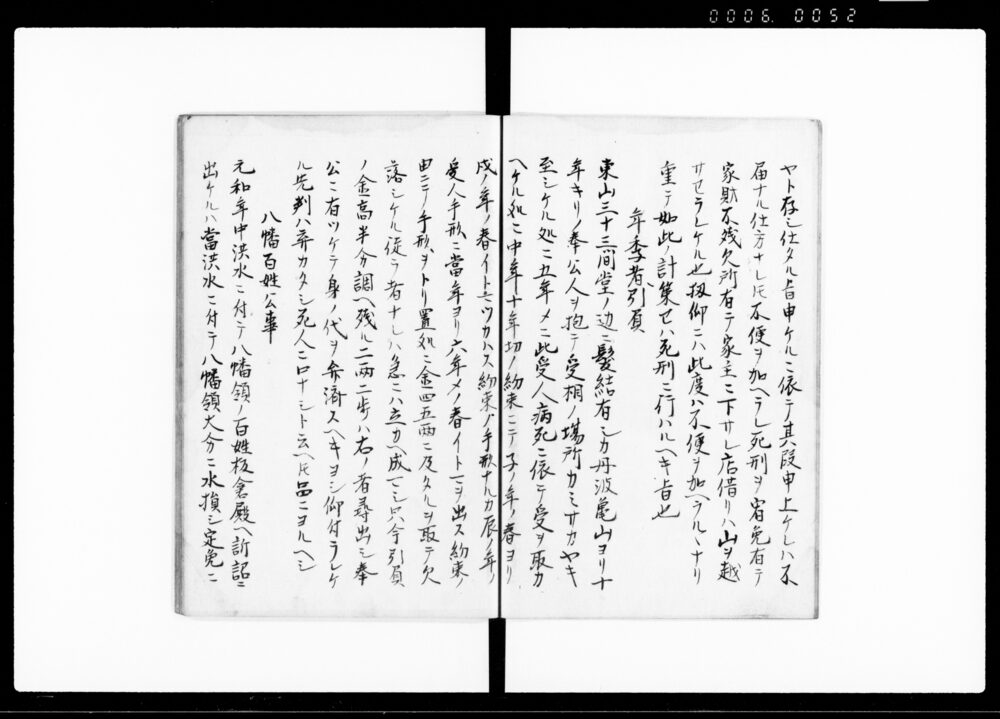 0006. 0052
ヤト存シ仕タル旨申ケルニ依テ其段申上ケレハ不
届ナル仕方ナレ𪜈不便ヲ加ヘラレ死刑ヲ宥免有テ
家財不残欠所有テ家主ニ下サレ店借リハ山ヲ越
サセラレケル也扨仰ニハ此度ハ不便ヲ加ヘラルヽナリ
重テ如此ノ計策セハ死刑ニ行ハルヘキ旨也
年季者引負
東山三十三間堂ノ辺ニ髪結有シカ丹波亀山ヨリ十
年キリノ奉公人ヲ抱テ受相ノ場所カミサカヤキ
至シケル処ニ五年メニ此受人病死ニ依テ受ヲ取カ
ヘケル処ニ中年十年切ノ約束ニテ子ノ年ノ春ヨリ
戌ノ年ノ春イトマツカハス約束ノ手形ナルカ辰ノ年ノ
受人手形ニ當年ヨリ六年メノ春イトマヲ出ス約束ノ
由ニテ手形ヲトリ置処ニ金四五両ニ及タルヲ取テ欠
落シケル従ラ者ナレハ急ニハ立カヘ成マシ只今引負
ノ金高半分調ヘ残ル二両二歩ハ右ノ者尋出シ奉
公ニ有ツケテ身ノ代ヲ弁済スヘキヨシ仰付ラレケ
ル先判ハ弃カタシ死人ニ口ナシト云ヘ𪜈品ニヨルヘシ
八幡百姓公事
元和年中洪水ニ付テ八幡領ノ百姓板倉殿ヘ訴詔ニ
出ケルハ當洪水ニ付テ八幡領大分ニ水損シ定免ニ